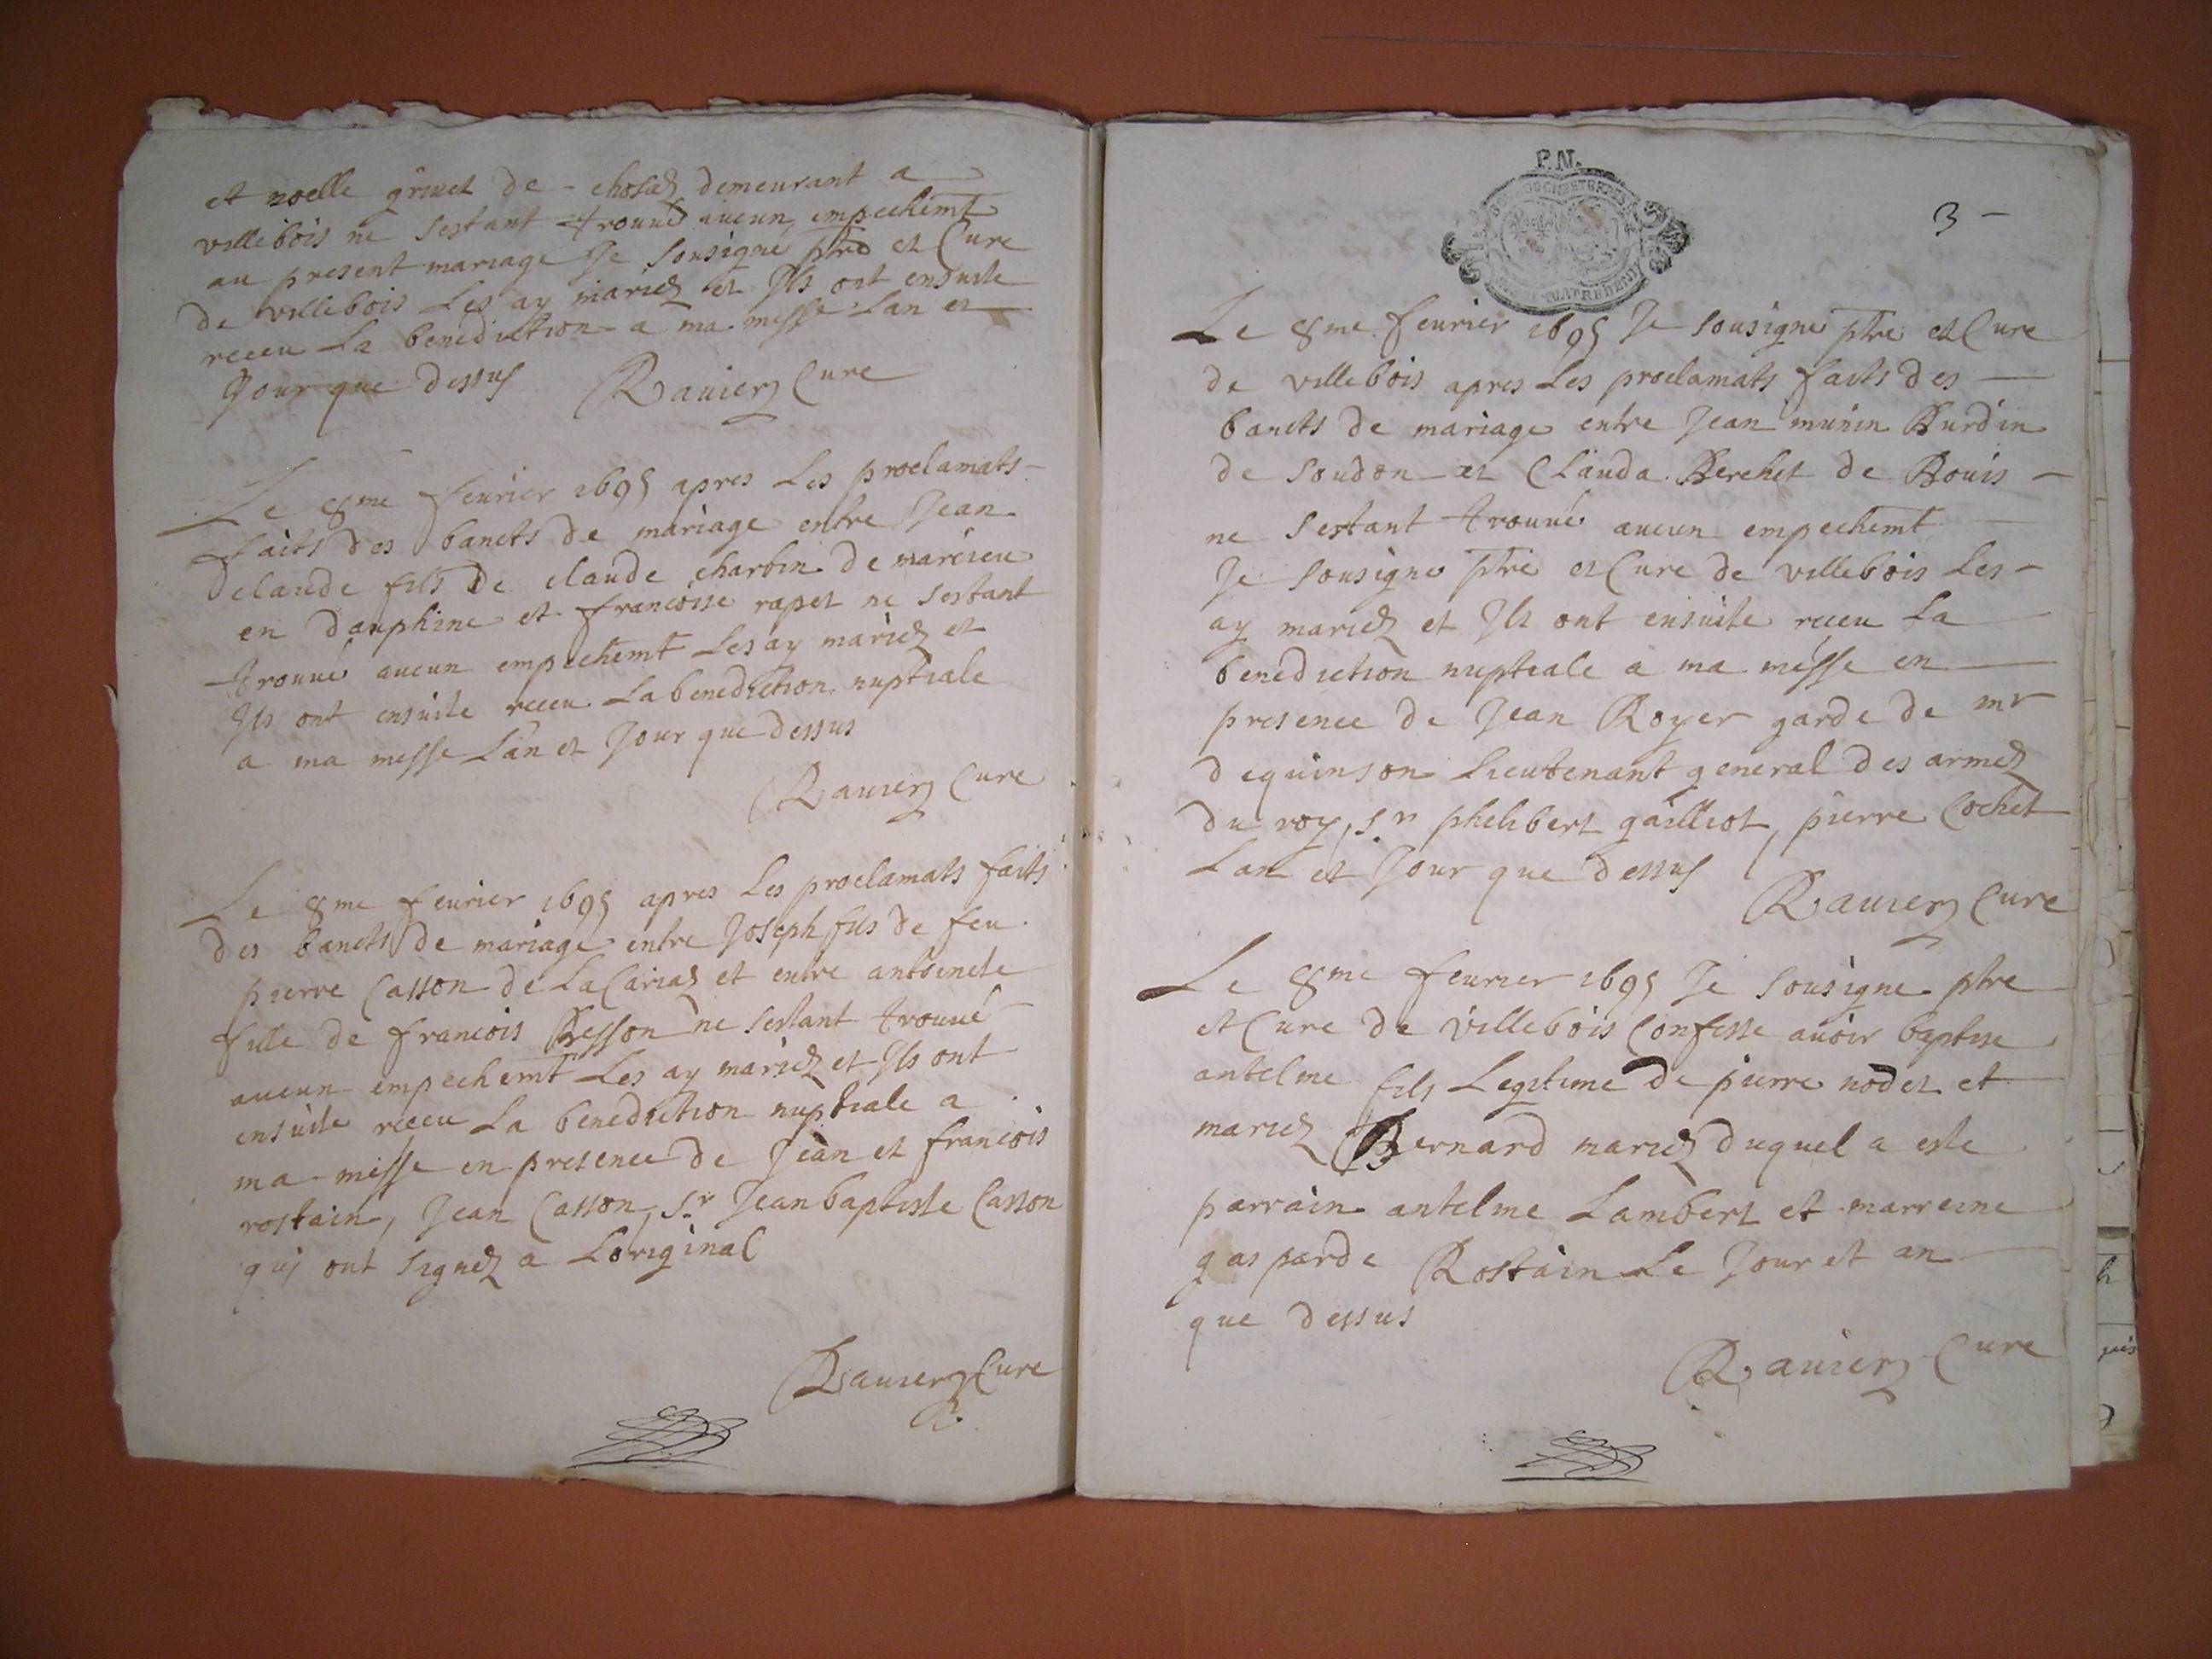 et noelle grivet de - chosaz demeurant a
villebois ne sestant trouvé aucun empechemt
au present mariage Je sousigné ptre et Cure
de villebois Les ay mariez et Ils ont ensuite
receu La benediction a ma messe Lan et
Jour que dessus Ravier Cure
Le 8me feurier 1695 apres Les proclamats
faits des bancts de mariage entre Jean
claude fils de claude charbin de marcieu
en dauphine et francoise rapet ne sestant
trouué aucun empechemt Les ay mariez et
Ils ont ensuite receu La benediction nuptiale
a ma messe Lan et Jour que dessus
Rauier Cure
Le 8me feurier 1695 apres Les proclamats faits
des bancts de mariage entre Joseph fils de feu
pierre Casson de La Cariaz et entre antoinete
fille de francois Besson ne sestant trouué
aucun empechemt Les ay mariez et Ils ont
ensuite receu La benediction nuptiale a
ma messe en presence de Jean et francois
rostain, Jean Casson, Sr Jean baptiste Casson
qui ont signez a Loriginal
Rauier Cure
3 -
Le 8me feurier 1695 Je sousigne ptre et Cure
de villebois apres Les proclamats faits des
bancts de mariage entre Jean munin Burdin
de soudon et Clauda Berchet de Bouis
ne sestant trouué aucun empechemt
Je sousigne ptre et Cure de villebois Les
ay mariez et Ils ont ensuite receu La
benediction nuptiale a ma messe en
presence de Jean Royer garde de mr
dequinson Lieutenant general des armez
du roy, Sr philibert gailliot, pierre Cochet
Lan et Jour que dessus
Rauier Cure
Le 8me feurier 1695 Je sousigne ptre
et Cure de villebois Confesse auoir baptise
antelme fils Legitime de pierre nodet et
mariez Bernard mariez duquel a este
parrain antelme Lambert et marreine
gasparde Rostain Le Jour et an
que dessus
Rauier Cure